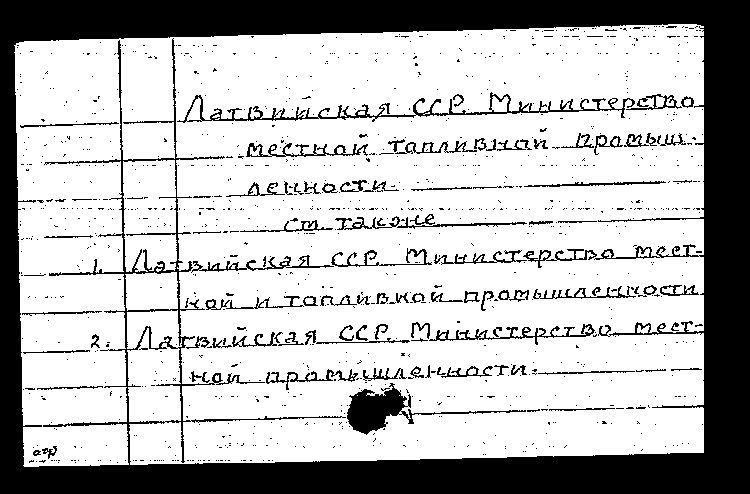 Латвийская ССР. Министерство
местной топливной промыш-
ленности.
см. также
1. Латвийская ССР. Министерство мест-
ной и топливной промышленности
2. Латвийская ССР. Министерство мест-
ной промышленности.